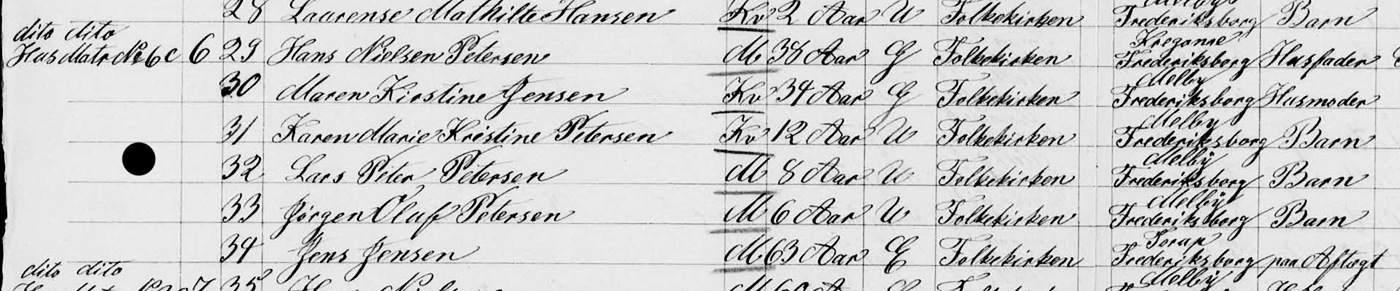 28 Laurense Mathilte Hansen Kv 2 Aar U Folkekirken Frederiksborg Barn
dito dito
Hus Matr No 6c 6 29 Hans Nielsen Petersen M 38 Aar G Folkekirken Kregome Frederiksborg Husfader
30 Maren Kirstine Jensen Kv 34 Aar G Folkekirken Melby Frederiksborg Husmoder
31 Karen Marie Kristine Petersen Kv 12 Aar U Folkekirken Melby Frederiksborg Barn
32 Lars Peter Petersen M 8 Aar U Folkekirken Melby Frederiksborg Barn
33 Jørgen Oluf Petersen M 6 Aar U Folkekirken Melby Frederiksborg Barn
34 Jens Jensen M 63 Aar E Folkekirken Torup Frederiksborg paa Aftægt
dito dito
35 Melby